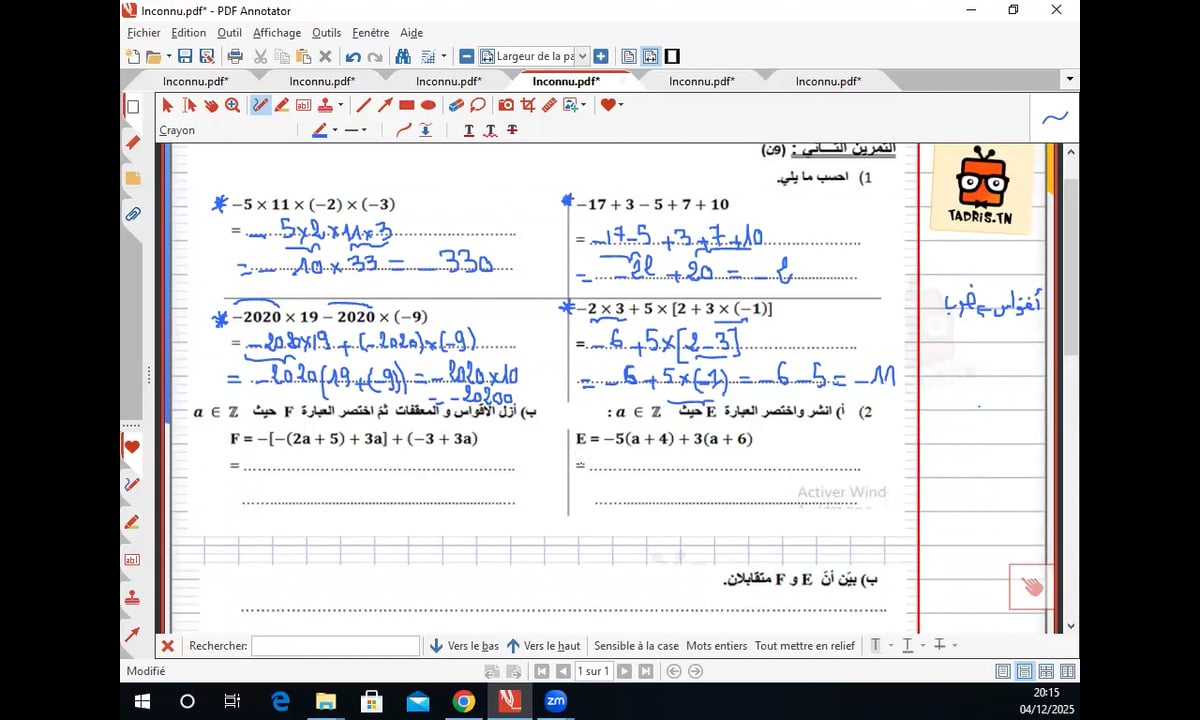 Inconnu.pdf* - PDF Annotator
Fichier Edition Outil Affichage Outils Fenêtre Aide
Largeur de la pa
Inconnu.pdf* Inconnu.pdf* Inconnu.pdf* Inconnu.pdf* Inconnu.pdf* Inconnu.pdf*
Crayon
التمرين الثاني : (9ن)
TADRIS.TN
1) احسب ما يلي.
−17 + 3 − 5 + 7 + 10
= -17-5 +3+7+10
= -22 +20 = -2
−5 × 11 × (−2) × (−3)
= - 5×2×11×3
= - 10 × 33 = - 330
−2 × 3 + 5 × [2 + 3 × (−1)]
= -6 +5×[2-3]
= -6 +5×(-1) = -6-5 = -11
−2020 × 19 − 2020 × (−9)
= -2020×19 + (-2020)×(-9)
= -2020(19+(-9)) = -2020×10
= -20200
2) أ) انشر واختصر العبارة E حيث a ∈ ℤ :
E = −5(a + 4) + 3(a + 6)
=
ب) أزل الأقواس و المعقفات ثم اختصر العبارة F حيث a ∈ ℤ
F = −[−(2a + 5) + 3a] + (−3 + 3a)
=
Activer Wind
ب) بيّن أنّ E و F متقابلان.
Rechercher: Vers le bas Vers le haut Sensible à la case Mots entiers Tout mettre en relief
Modifié
1 sur 1
zm
20:15
04/12/2025